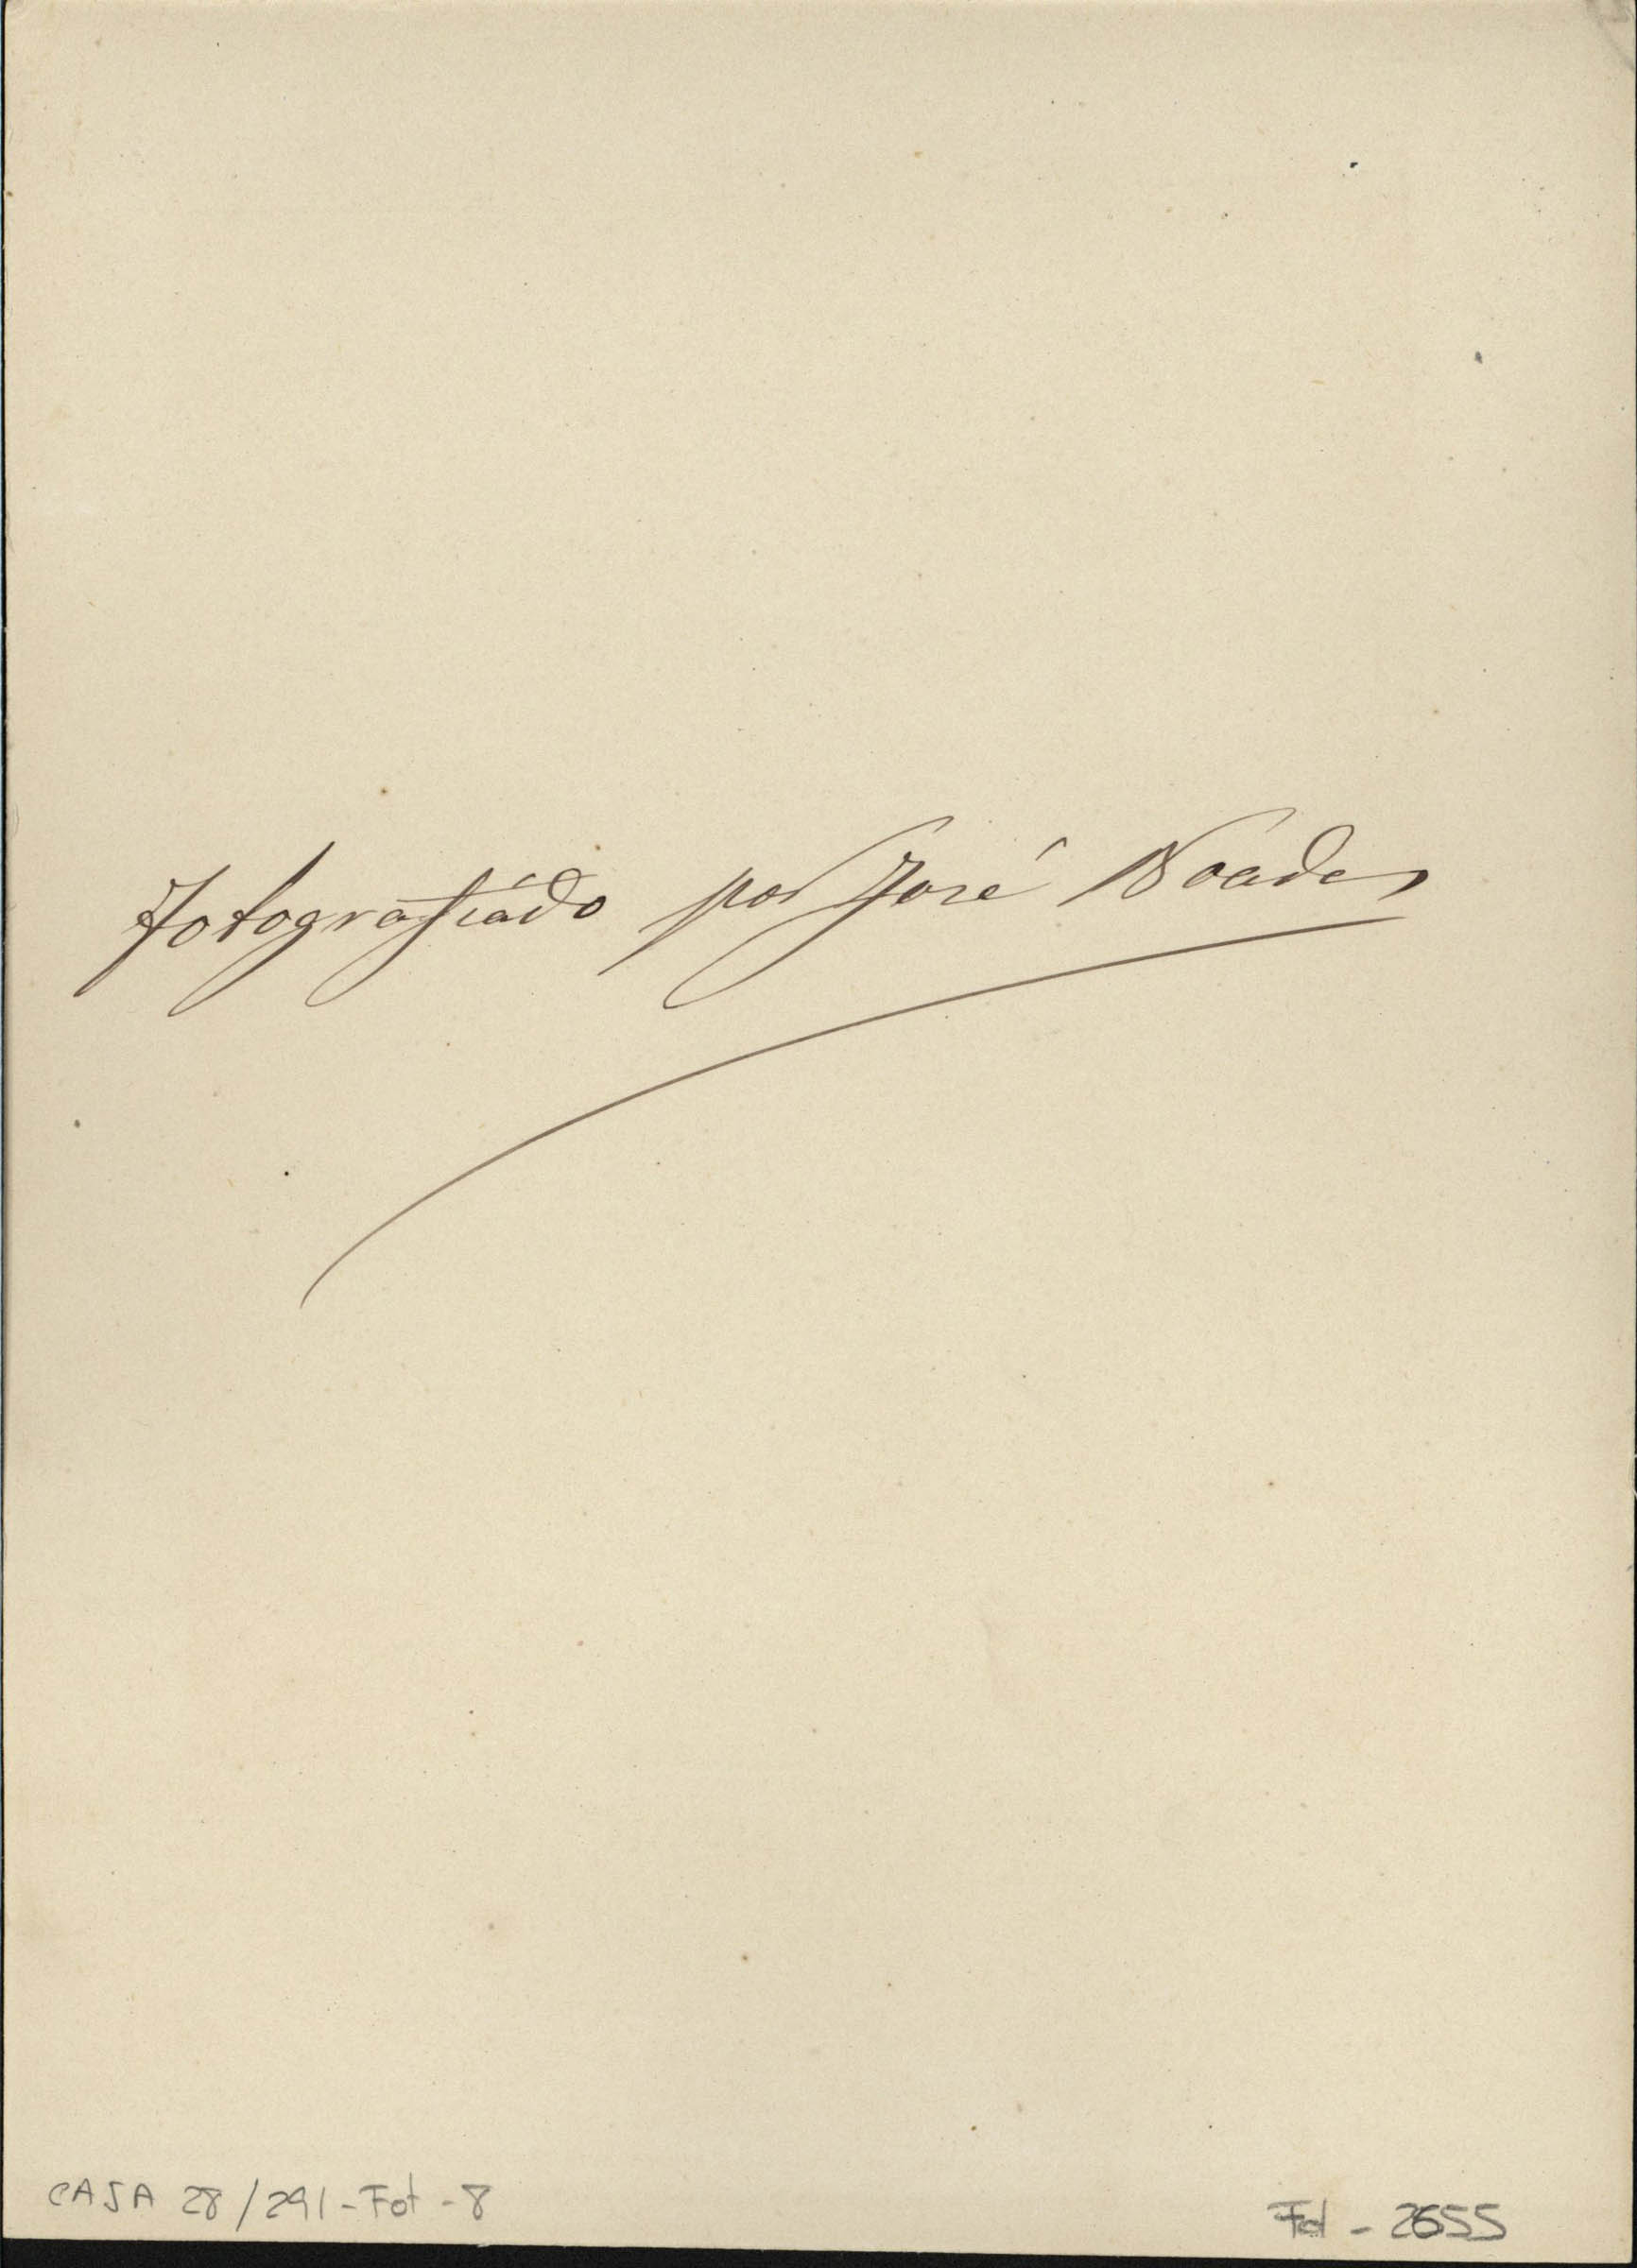 fotografiádo por José Noades
CAJA 28/291-Fot-8
Fot - 2655